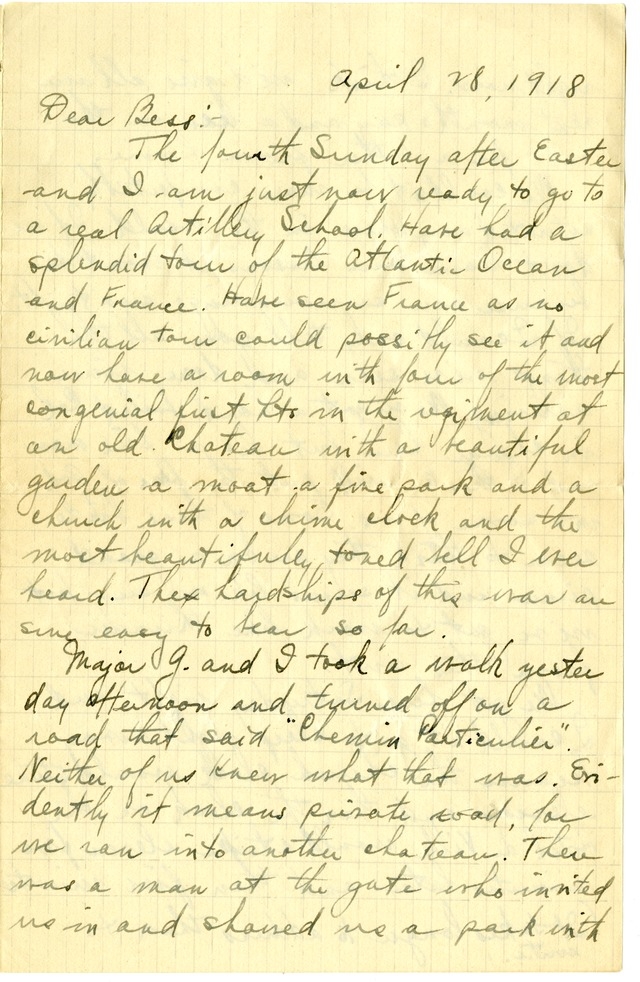 April 28, 1918
Dear Bess:-
The fourth Sunday after Easter
and I am just now ready to go to
a real Artillery School. Have had a
splendid tour of the Atlantic Ocean
and France. Have seen France as no
civilian tour could possibly see it and
now have a room with four of the most
congenial first Lts in the regiment at
an old Chateau with a beautiful
garden a moat a fine park and a
church with a chime clock and the
most beautifully toned bell I ever
heard. The hardships of this war are
sure easy to bear so far.
Major G. and I took a walk yester
day afternoon and turned off on a
road that said "Chemin Particulier".
Neither of us knew what that was. Evi-
dently it means private road, for
we ran into another chateau. There
was a man at the gate who invited
us in and showed us a park with